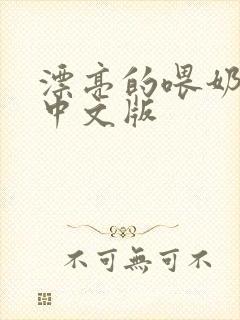 漂亮的喂奶
中文版
不可無可不